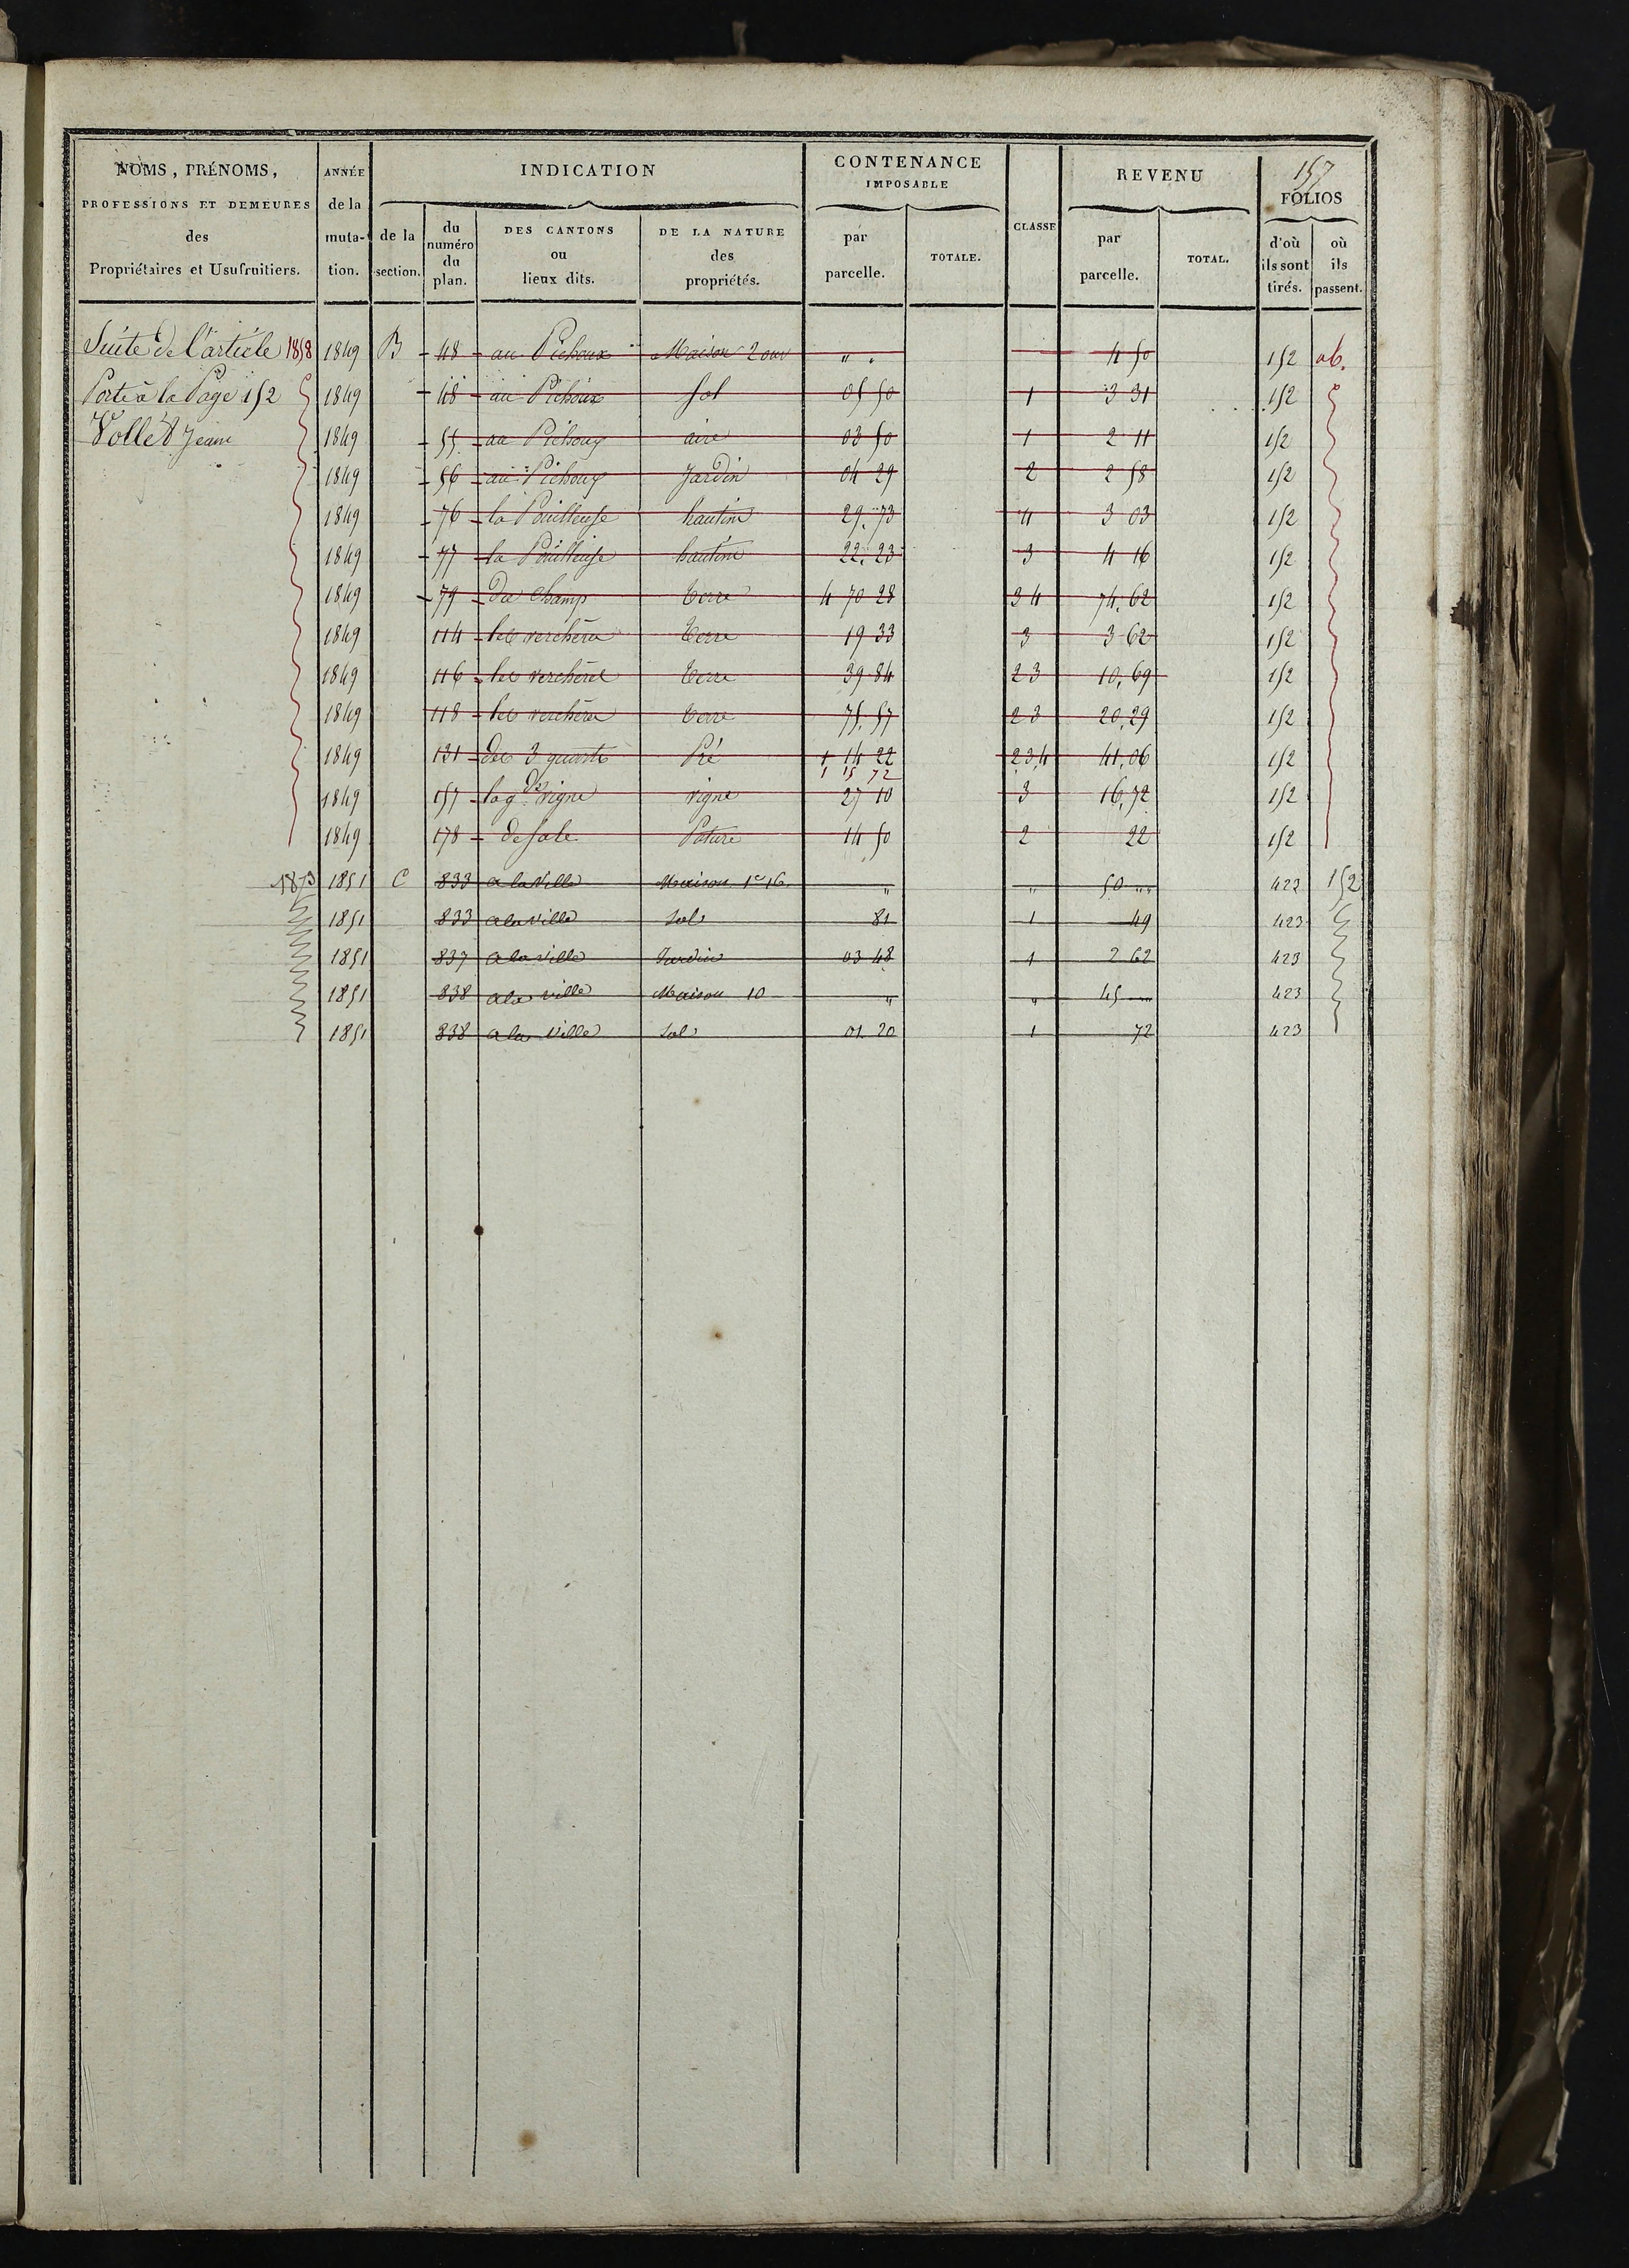 157
NOMS, PRÉNOMS, PROFESSIONS ET DEMEURES des Propriétaires et Usufruitiers.
ANNÉE de la muta-tion.
INDICATION
de la section.
du numéro du plan.
DES CANTONS ou lieux dits.
DE LA NATURE des propriétés.
CONTENANCE IMPOSABLE
par parcelle.
TOTALE.
CLASSE
REVENU
par parcelle.
TOTAL.
FOLIOS
d'où ils sont tirés.
où ils passent.
Suite de l'article 1858 1849 B 48 au Pichoux Maison 2 ouv " " 4 50 152 ab.
Porté à la Page 152 1849 48 au Pichoux Sol 05 50 1 3 31 152
Vollet Jean 1849 55 au Pichoux aire 03 50 1 2 11 152
1849 56 au Pichoux Jardin 04 29 2 2 58 152
1849 76 la Pouilleuse hautin 29. 73 4 3 03 152
1849 77 la Pouilleuse hautin 22. 23 3 4 16 152
1849 79 Du Champ terre 4 70 28 3 4 74. 62 152
1849 114 les verchères terre 19 33 3 3 62 152
1849 116 les verchères terre 39 84 2 3 10, 69 152
1849 118 les verchères terre 75. 57 2 3 20, 29 152
1849 131 des 3 quarts Pré 1 14 22 2 3, 4 41, 06 152
1 15 72
1849 157 la gde vigne vigne 27 10 3 16, 72 152
1849 178 Pature 14 50 2 22 152
1873 1851 C 833 a la Ville Maison 1e 16 " " 50 " 423 152
1851 833 a la ville Sol 81 1 49 423
1851 837 a la ville Jardin 03 48 1 2 62 423
1851 838 a la ville Maison 10 " " 45 " 423
1851 838 a la ville Sol 01 20 1 72 423